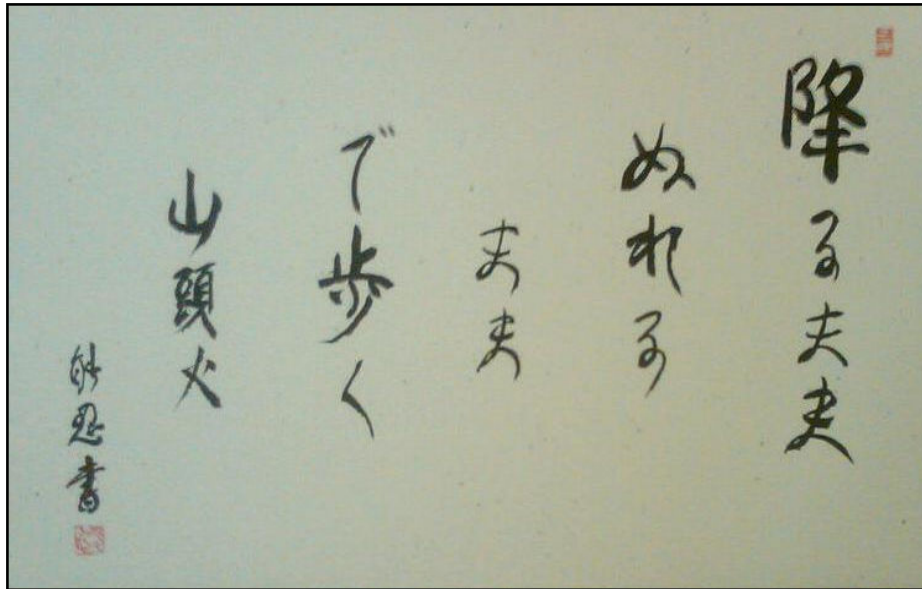 降るまま
ぬれる
まま
で歩く
山頭火
能忍書